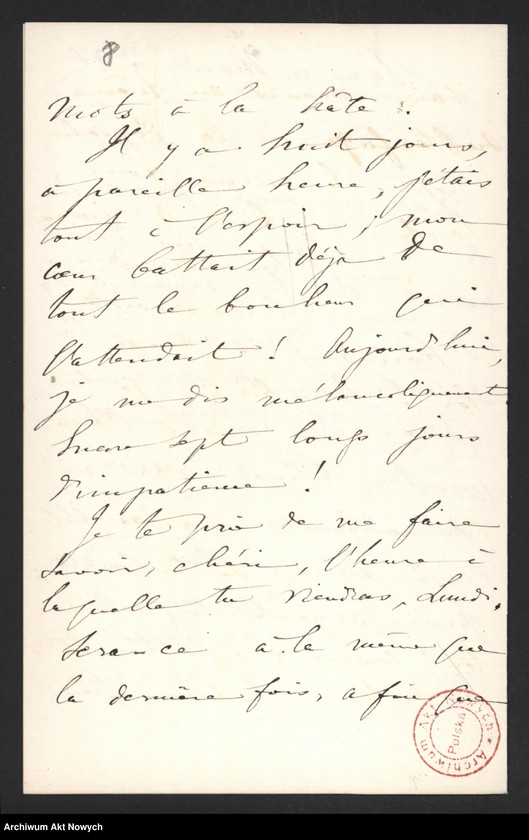 8
mots à la hâte.
Il y a huit jours,
à pareille heure, j'étais
tout à l'espoir, mon
cœur battait déjà de
tout le bonheur qui
l'attendait ! Aujourd'hui,
je me dis mélancoliquement
Encore sept longs jours
d'impatience !
Je te prie de me faire
savoir, chéri, l'heure à
laquelle tu viendras, Lundi.
Sera-ce à la même que
la dernière fois, afin que
Archiwum Akt Nowych
Polska
Archiwum Akt Nowych